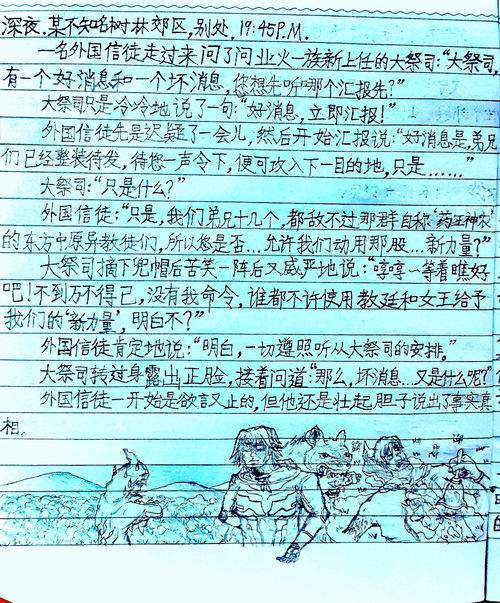 深夜.某不知名树林郊区,别处.19:45P.M.
一名外国信徒走过来问了问业火一族新上任的大祭司:“大祭司,
有一个好消息和一个坏消息,您想先听哪个汇报先?”
大祭司只是冷冷地说了一句:“好消息,立即汇报!”
外国信徒先是迟疑了一会儿,然后开始汇报说:“好消息是,弟兄
们已经整装待发,待您一声令下,便可攻入下一目的地,只是……”
大祭司:“只是什么?”
外国信徒:“只是,我们弟兄十几个,都敌不过那群自称‘药王神农’
的东方中原异教徒们,所以您是否…允许我们动用那股…新力量?”
大祭司摘下兜帽后苦笑一阵后又威严地说:“哼哼~等着瞧好
吧!不到万不得已,没有我命令,谁都不许使用教廷和女王给予
我们的‘新力量’,明白不?”
外国信徒肯定地说:“明白,一切遵照听从大祭司的安排。”
大祭司转过身露出正脸,接着问道:“那么,坏消息…又是什么呢?”
外国信徒一开始是欲言又止的,但他还是壮起胆子说出了事实真
相。